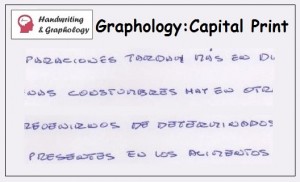 Handwriting
& Graphology
Graphology:Capital Print
PARACIONES TARDAN MÁS EN DI
NAS CONSTUMBRES HAY EN OTR
DE DETERMINADOS
PRESENTES EN LOS ALIMENTOS